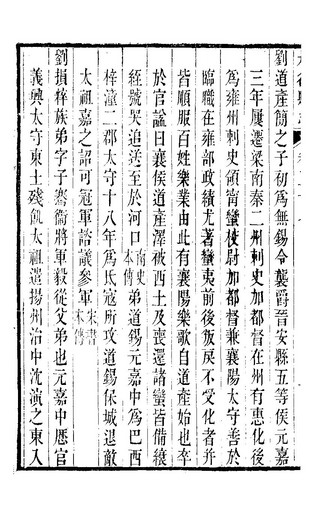 劉道產簡之子初爲無錫令襲爵晉安縣五等侯元嘉
三年屢遷梁南秦二州刺史加都督在州有惠化後
爲雍州刺史領甯蠻校尉加都督兼襄陽太守善於
臨職在雍部政績尤著蠻夷前後叛戾不受化者并
皆順服百姓樂業由此有襄陽樂歌自道產始也卒
於官諡曰襄侯道產澤被西土及喪還諸蠻皆備縗
絰號哭追送至於河口南史本傳弟道錫元嘉中爲巴西
梓潼二郡太守十八年爲氐寇所攻道錫保城退敵
太祖嘉之詔可冠軍諮議參軍宋書本傳
劉損粹族弟字子騫衞將軍毅從父弟也元嘉中歷官
義興太守東土殘飢太祖遣揚州治中沈演之東入